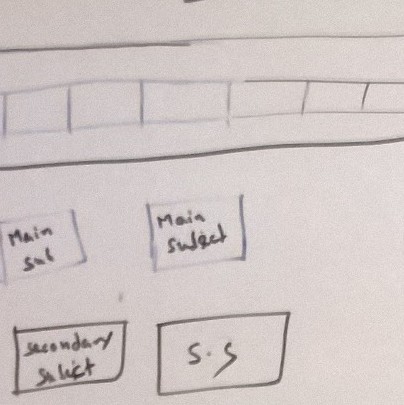 Main
sub
Main
subject
secondary
subject
S.S